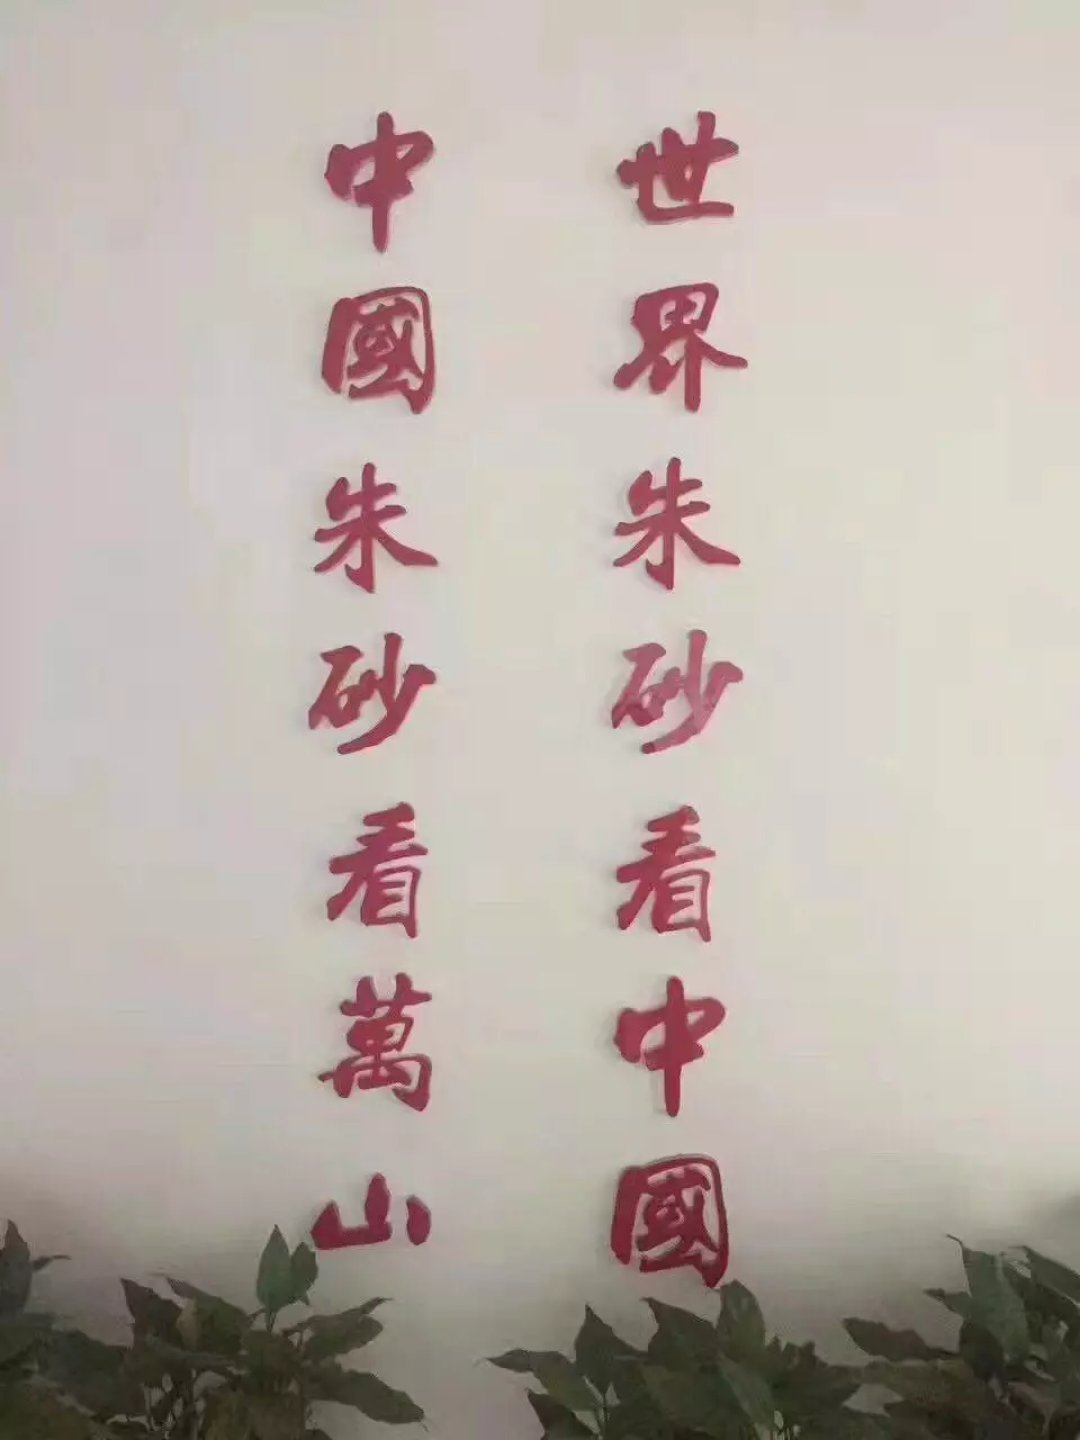 世界朱砂看中國
中國朱砂看萬山